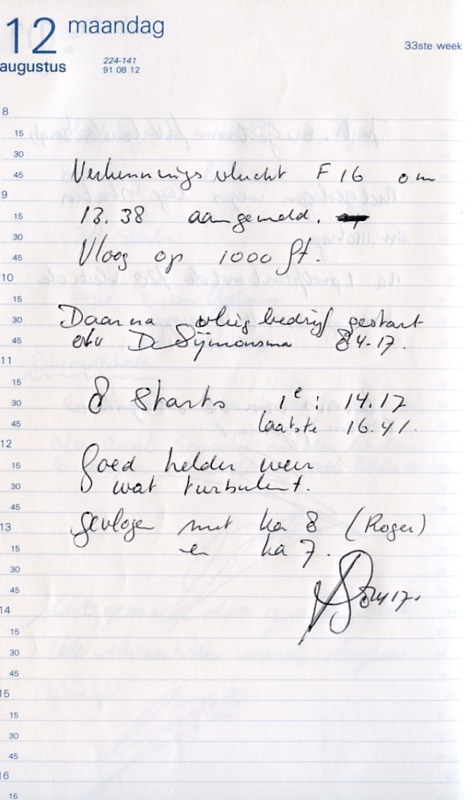 12 maandag
augustus
224-141
91 08 12
33ste week
8
15
30
45
9
15
30
45
10
15
30
45
11
15
30
45
12
15
30
45
13
15
30
45
14
15
30
45
15
15
30
45
16
15
Verkennings vlucht F16 om
13.38 aangemeld.
Vloog op 1000 ft.
Daarna vliegbedrijf gestart
olv D. Sijmonsma 84-17.
8 starts 1e: 14.17
laatste 16.41.
Goed helder weer
wat turbulent.
gevlogen met ka 8 (Roger)
en ka 7.